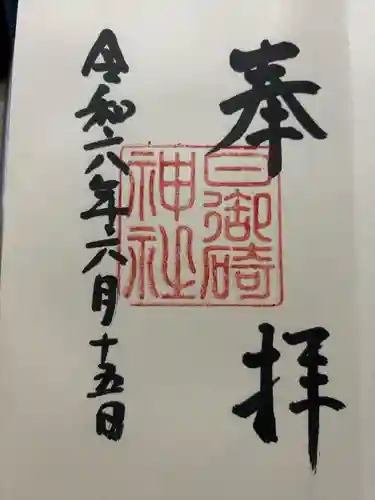 奉拝
日御碕神社
令和六年六月十五日